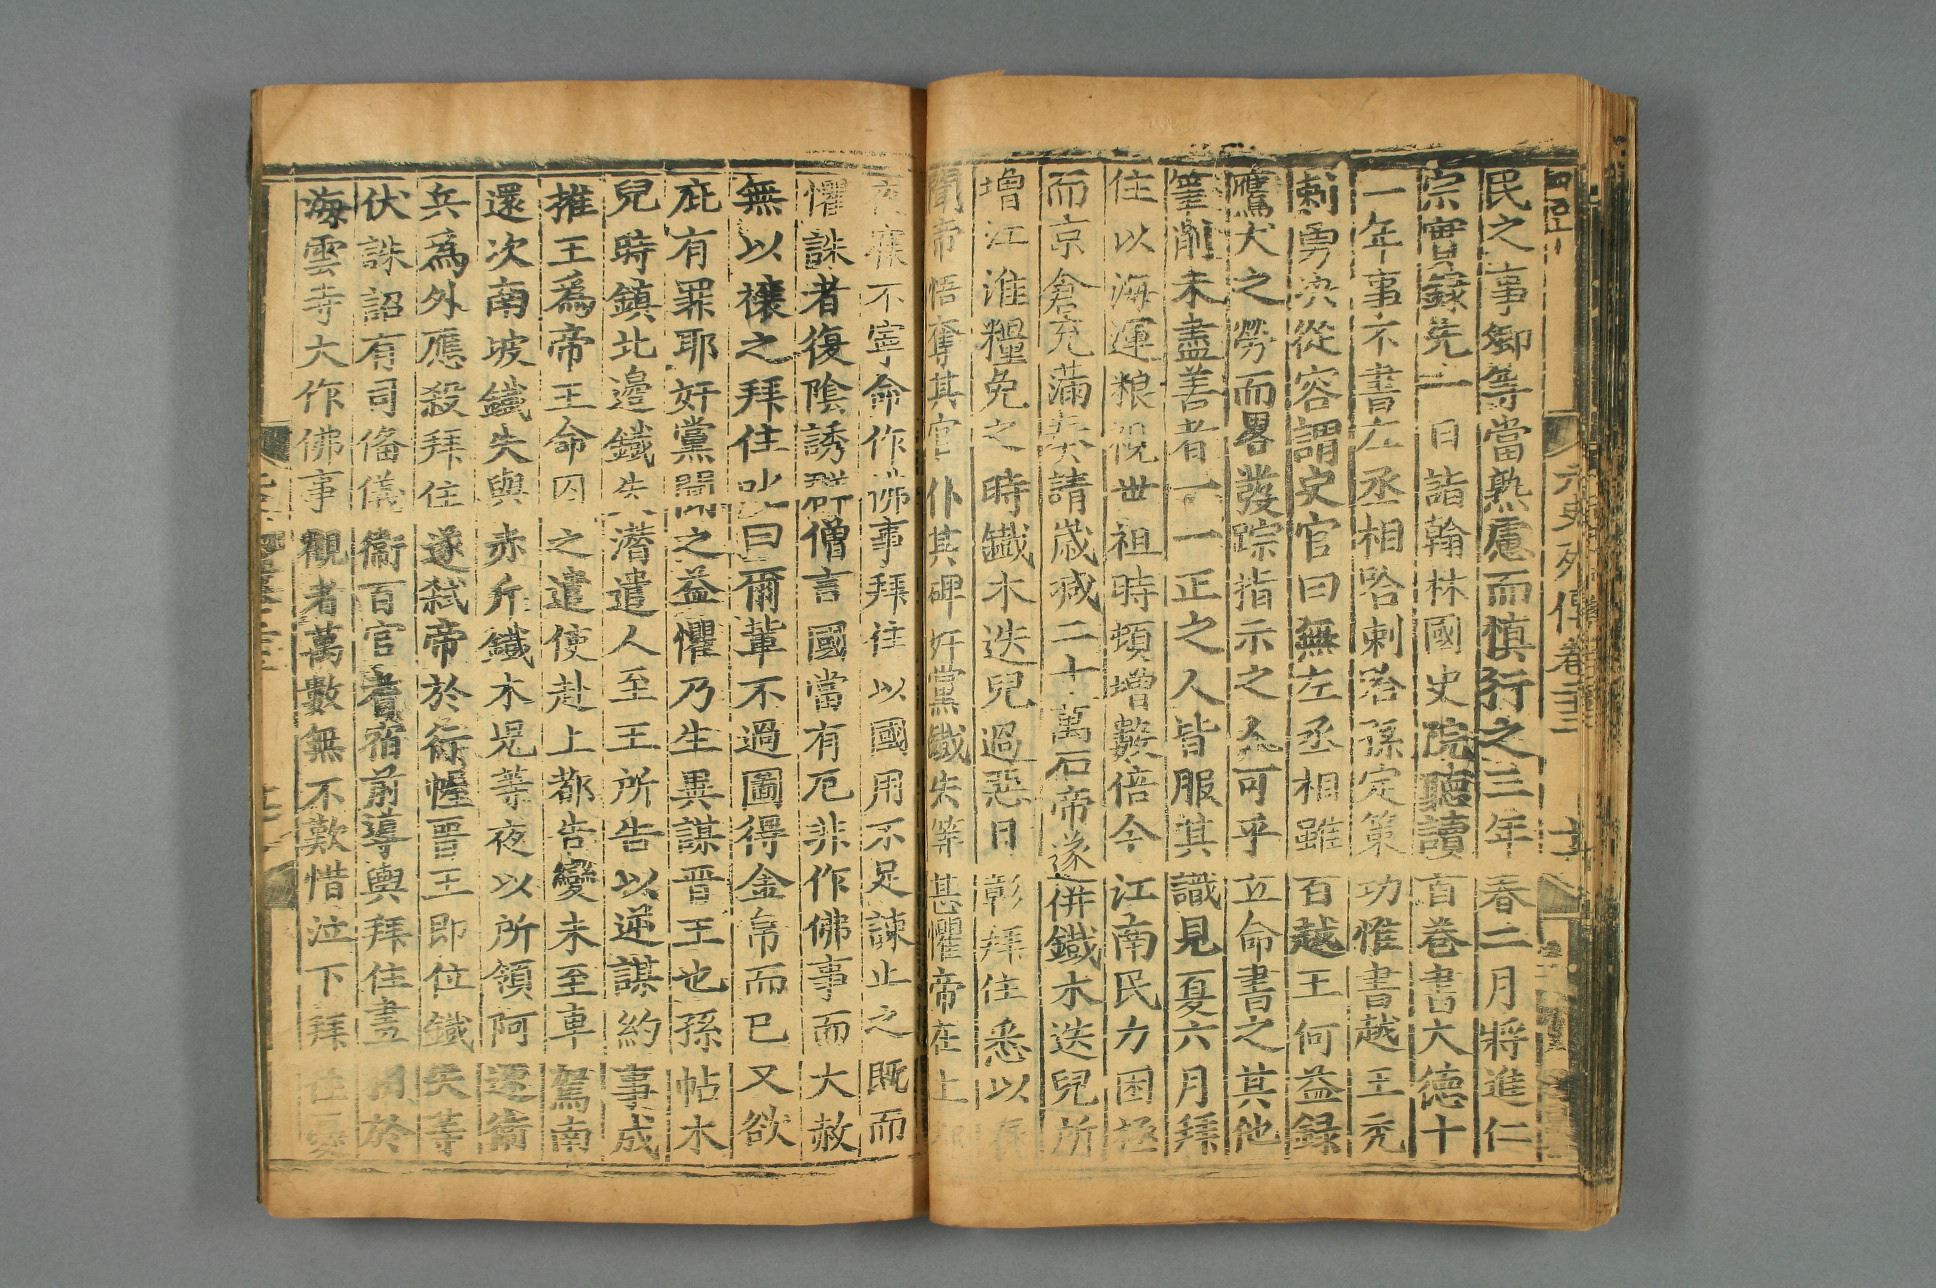 元史列傳卷二十三
民之事卿等當熟慮而慎行之三年春二月將進仁
宗實錄先一日詣翰林國史院聽讀首卷書大德十
一年事不書左丞相哈剌哈孫定策功惟書越王禿
剌勇決從容謂史官曰無左丞相雖百越王何益錄
鷹犬之勞而畧發踪指示之人可乎立命書之其他
筆削未盡善者一一正之人皆服其識見夏六月拜
住以海運粮視世祖時頓增數倍今江南民力困極
而京倉充滿奏請歲減二十萬石帝遂併鐵木迭兒所
增江淮糧免之時鐵木迭兒過惡日彰拜住悉以奏
聞帝悟奪其官仆其碑奸黨鐵失等甚懼帝在上都
夜寐不寧命作佛事拜住以國用不足諫止之既而
懼誅者復陰誘群僧言國當有厄非作佛事而大赦
無以禳之拜住叱曰爾輩不過圖得金帛而已又欲
庇有罪耶奸黨聞之益懼乃生異謀晋王也孫帖木
兒時鎮北邊鐵失潛遣人至王所告以逆謀約事成
推王爲帝王命囚之遣使赴上都告變未至車駕南
還次南坡鐵失與赤斤鐵木兒等夜以所領阿速衞
兵爲外應殺拜住遂弑帝於行幄晋王即位鐵失等
伏誅詔有司俻儀衞百官耆宿前導輿拜住畫相於
海雲寺大作佛事觀者萬數無不歎惜泣下拜住憂